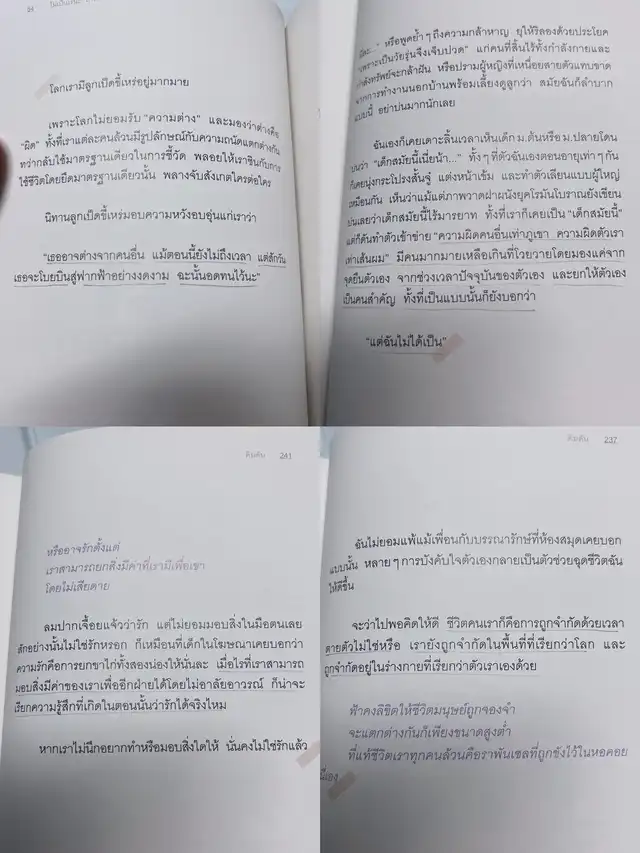 94
โลกเรามีลูกเป็ดขี้เหร่อยู่มากมาย
เพราะโลกไม่ยอมรับ "ความต่าง" และมองว่าต่างคือ
"ผิด" ทั้งที่เราแต่ละคนล้วนมีรูปลักษณ์กับความถนัดแตกต่างกัน
ทว่ากลับใช้มาตรฐานเดียวในการชี้วัด พลอยให้เราชินกับการ
ใช้ชีวิตโดยยึดมาตรฐานเดียวนั้น พลางจับสังเกตใครต่อใคร
นิทานลูกเป็ดขี้เหร่มอบความหวังอบอุ่นแก่เราว่า
"เธออาจต่างจากคนอื่น แม้ตอนนี้ยังไม่ถึงเวลา แต่สักวัน
เธอจะโบยบินสู่ฟากฟ้าอย่างงดงาม ฉะนั้นอดทนไว้นะ"
หรือพูดย้ำๆ ถึงความกล้าหาญ ยุให้ริลองด้วยประโยค
"เพราะเป็นวัยรุ่นจึงเจ็บปวด" แก่คนที่สิ้นไร้ทั้งกำลังกายและ
กำลังทรัพย์จะกล้าฝัน หรือปรามผู้หญิงที่เหนื่อยสายตัวแทบขาด
จากการทำงานนอกบ้านพร้อมเลี้ยงดูลูกว่า สมัยฉันก็ลำบาก
แบบนี้ อย่าบ่นมากนักเลย
ฉันเองก็เคยเดาะลิ้นเวลาเห็นเด็ก ม.ต้นหรือ ม.ปลายโดน
บ่นว่า "เด็กสมัยนี้เนี่ยน้า..." ทั้งๆ ที่ตัวฉันเองตอนอายุเท่าๆ กัน
ก็เคยนุ่งกระโปรงสั้นจู๋ แต่งหน้าเข้ม และทำตัวเลียนแบบผู้ใหญ่
เหมือนกัน เห็นว่าแม้แต่ภาพวาดฝาผนังยุคโรมันโบราณยังเขียน
บ่นเลยว่าเด็กสมัยนี้ไร้มารยาท ทั้งที่เราก็เคยเป็น "เด็กสมัยนี้"
แต่ก็ดันทำตัวเข้าข่าย "ความผิดคนอื่นเท่าภูเขา ความผิดตัวเรา
เท่าเส้นผม" มีคนมากมายเหลือเกินที่โวยวายโดยมองแค่จาก
จุดยืนตัวเอง จากช่วงเวลาปัจจุบันของตัวเอง และยกให้ตัวเอง
เป็นคนสำคัญ ทั้งที่เป็นแบบนั้นก็ยังบอกว่า
"แต่ฉันไม่ได้เป็น"
คิมตัน 241
หรืออาจรักตั้งแต่
เราสามารถยกสิ่งมีค่าที่เรามีเพื่อเขา
โดยไม่เสียดาย
ลมปากเจื้อยแจ้วว่ารัก แต่ไม่ยอมมอบสิ่งในมือตนเลย
สักอย่างนั้นไม่ใช่รักหรอก ก็เหมือนที่เด็กในโฆษณาเคยบอกว่า
ความรักคือการยกขาไก่ทั้งสองน่องให้นั่นละ เมื่อไรที่เราสามารถ
มอบสิ่งมีค่าของเราเพื่ออีกฝ่ายได้โดยไม่อาลัยอาวรณ์ ก็น่าจะ
เรียกความรู้สึกที่เกิดในตอนนั้นว่ารักได้จริงไหม
หากเราไม่นึกอยากทำหรือมอบสิ่งใดให้ นั่นคงไม่ใช่รักแล้ว
คิมตัน 237
ฉันไม่ยอมแพ้แม้เพื่อนกับบรรณารักษ์ที่ห้องสมุดเคยบอก
แบบนั้น หลายๆ การบังคับใจตัวเองกลายเป็นตัวช่วยฉุดชีวิตฉัน
ให้ดีขึ้น
จะว่าไปพอคิดให้ดี ชีวิตคนเราก็คือการถูกจำกัดด้วยเวลา
ตายตัวไม่ใช่หรือ เรายังถูกจำกัดในพื้นที่ที่เรียกว่าโลก และ
ถูกจำกัดอยู่ในร่างกายที่เรียกว่าตัวเราเองด้วย
ฟ้าคงลิขิตให้ชีวิตมนุษย์ถูกจองจำ
จะแตกต่างกันก็เพียงขนาดสูงต่ำ
ที่แท้ชีวิตเราทุกคนล้วนคือราพันเซลที่ถูกขังไว้ในหอคอย
นี่เอง